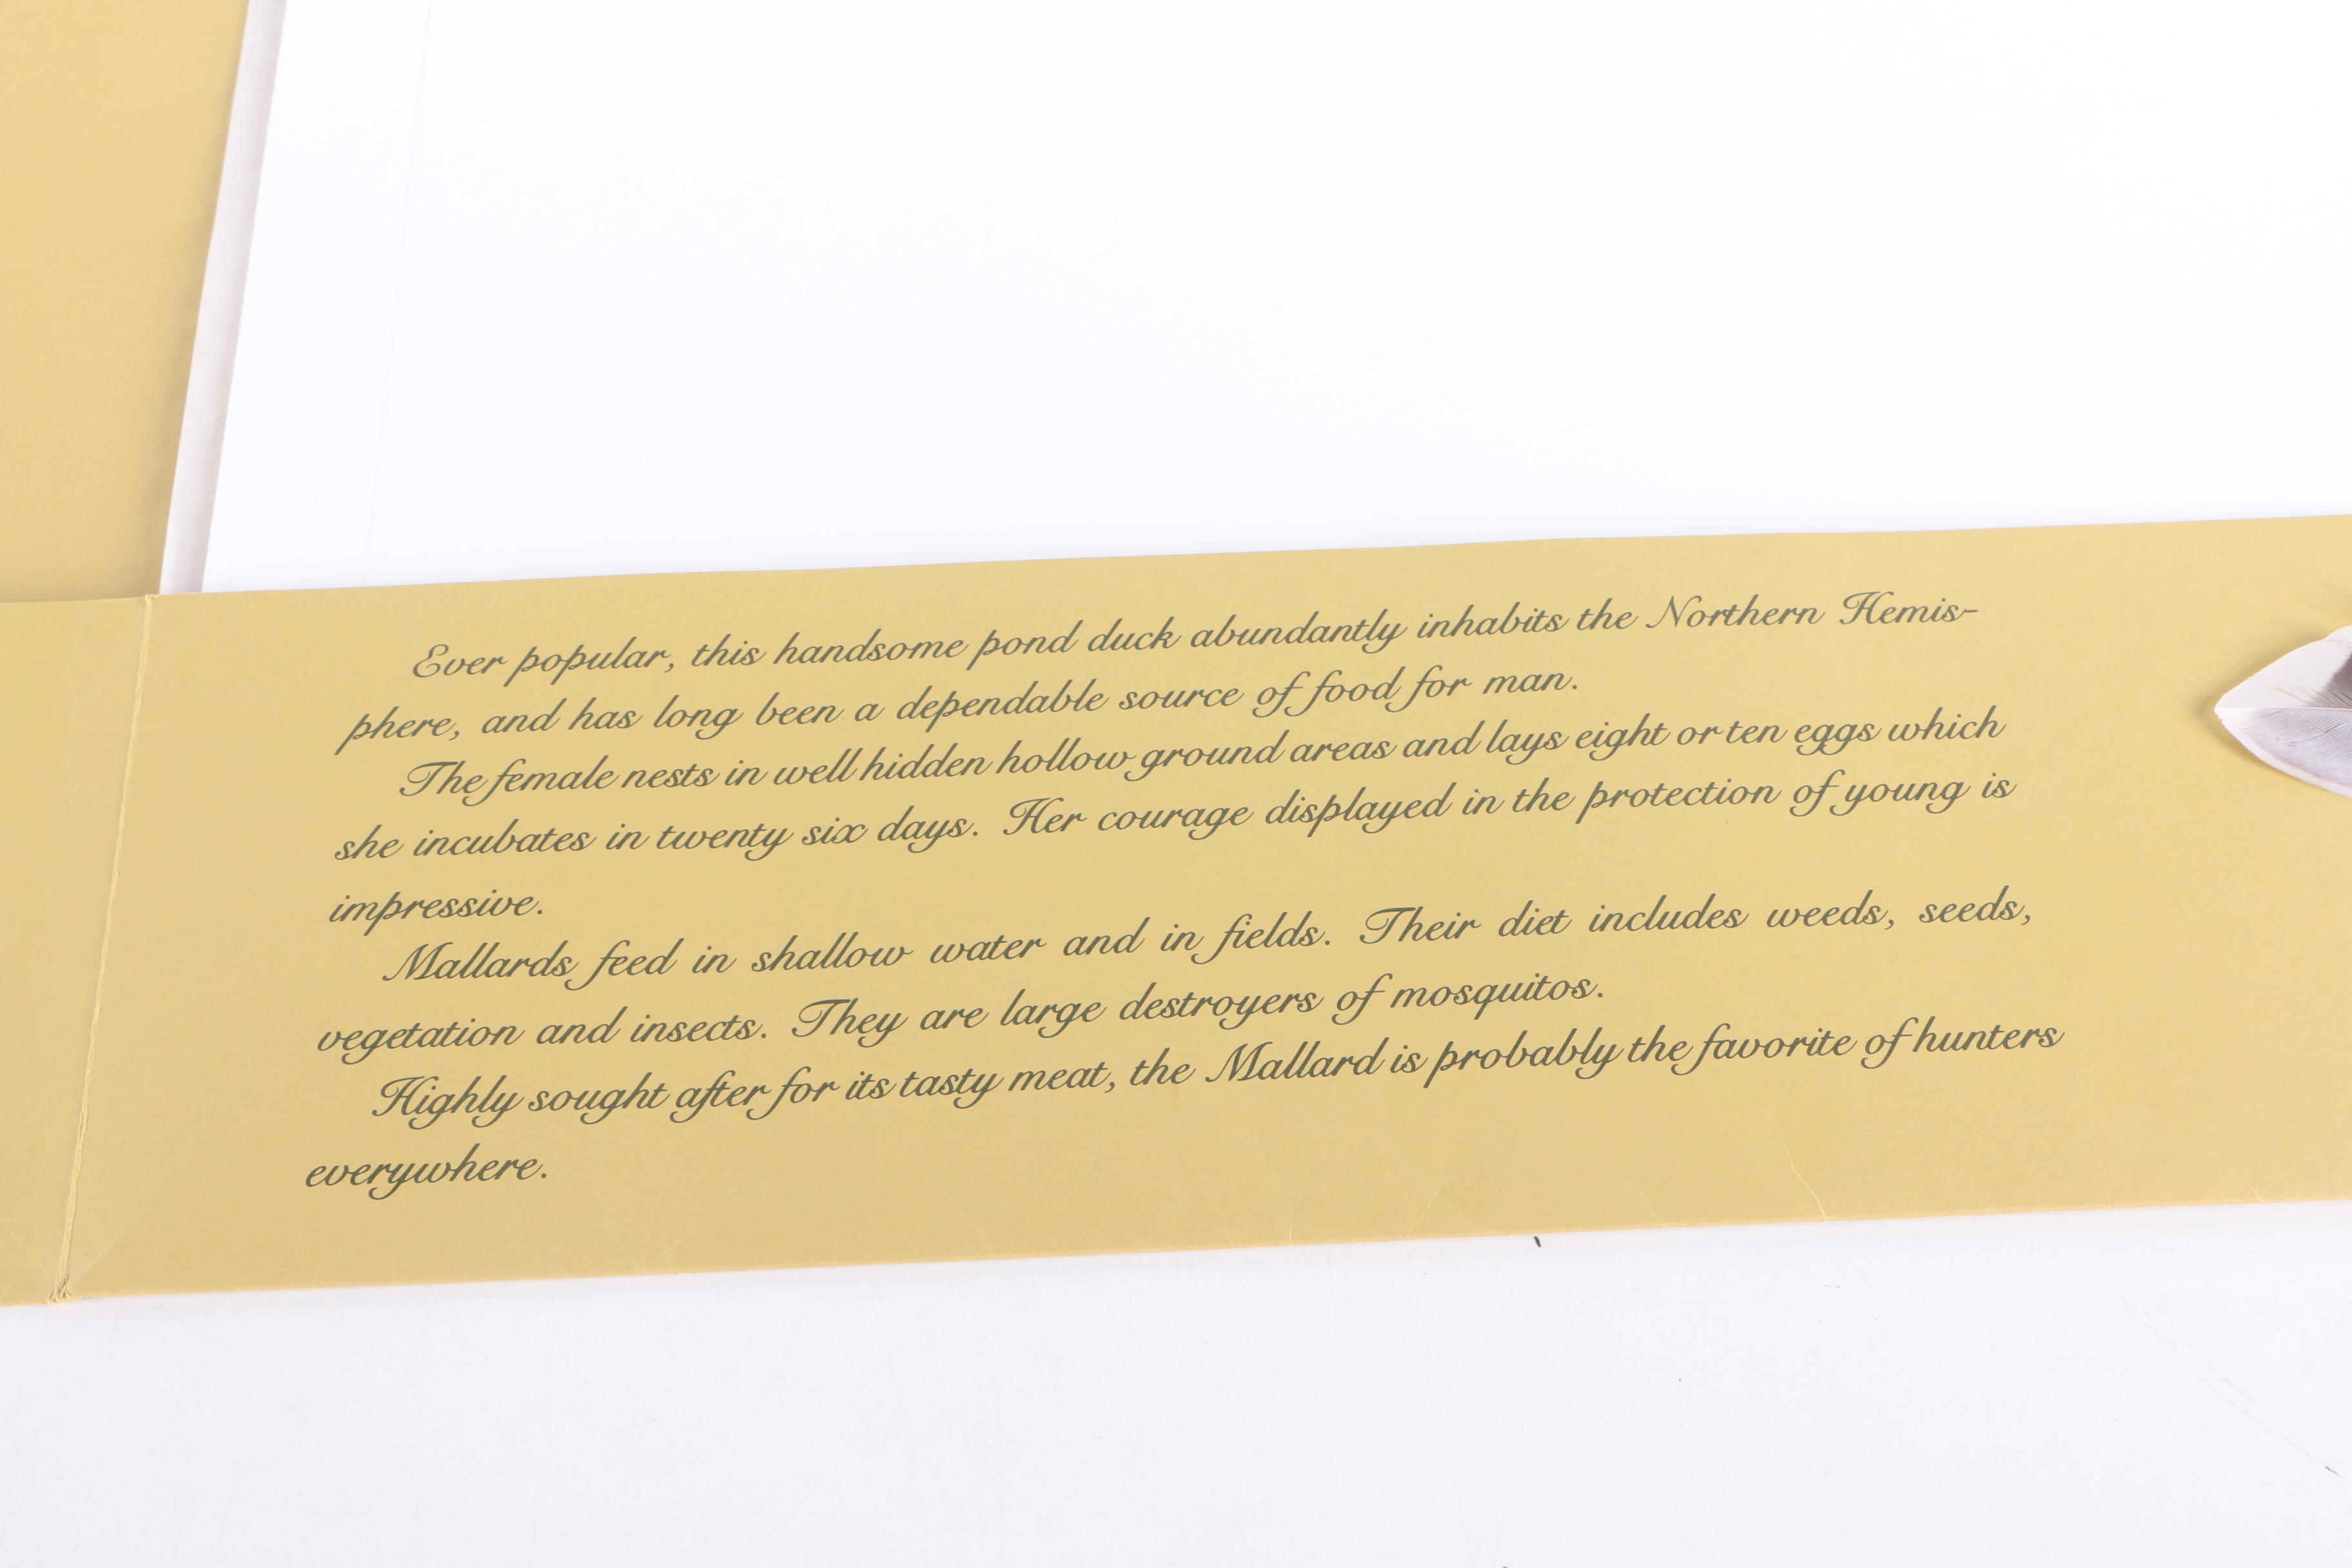 Ever popular, this handsome pond duck abundantly inhabits the Northern Hemis-
phere, and has long been a dependable source of food for man.
The female nests in well hidden hollow ground areas and lays eight or ten eggs which
she incubates in twenty six days. Her courage displayed in the protection of young is
impressive.
Mallards feed in shallow water and in fields. Their diet includes weeds, seeds,
vegetation and insects. They are large destroyers of mosquitos.
Highly sought after for its tasty meat, the Mallard is probably the favorite of hunters
everywhere.